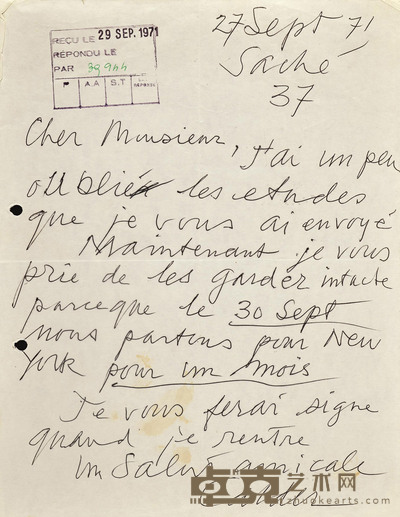 27 Sept 71
Saché
37
REÇU LE 29 SEP. 1971
RÉPONDU LE
PAR 39944
P A.A S.T
Cher Monsieur,
J'ai un peu
oublié les etudes
que je vous ai envoyé
Maintenant je vous
prie de les garder intacte
parceque le 30 Sept
nous partons pour New
York pour un mois
Je vous ferai signe
quand je rentre
un Salut amicale
艺术网
zhuokearts.com